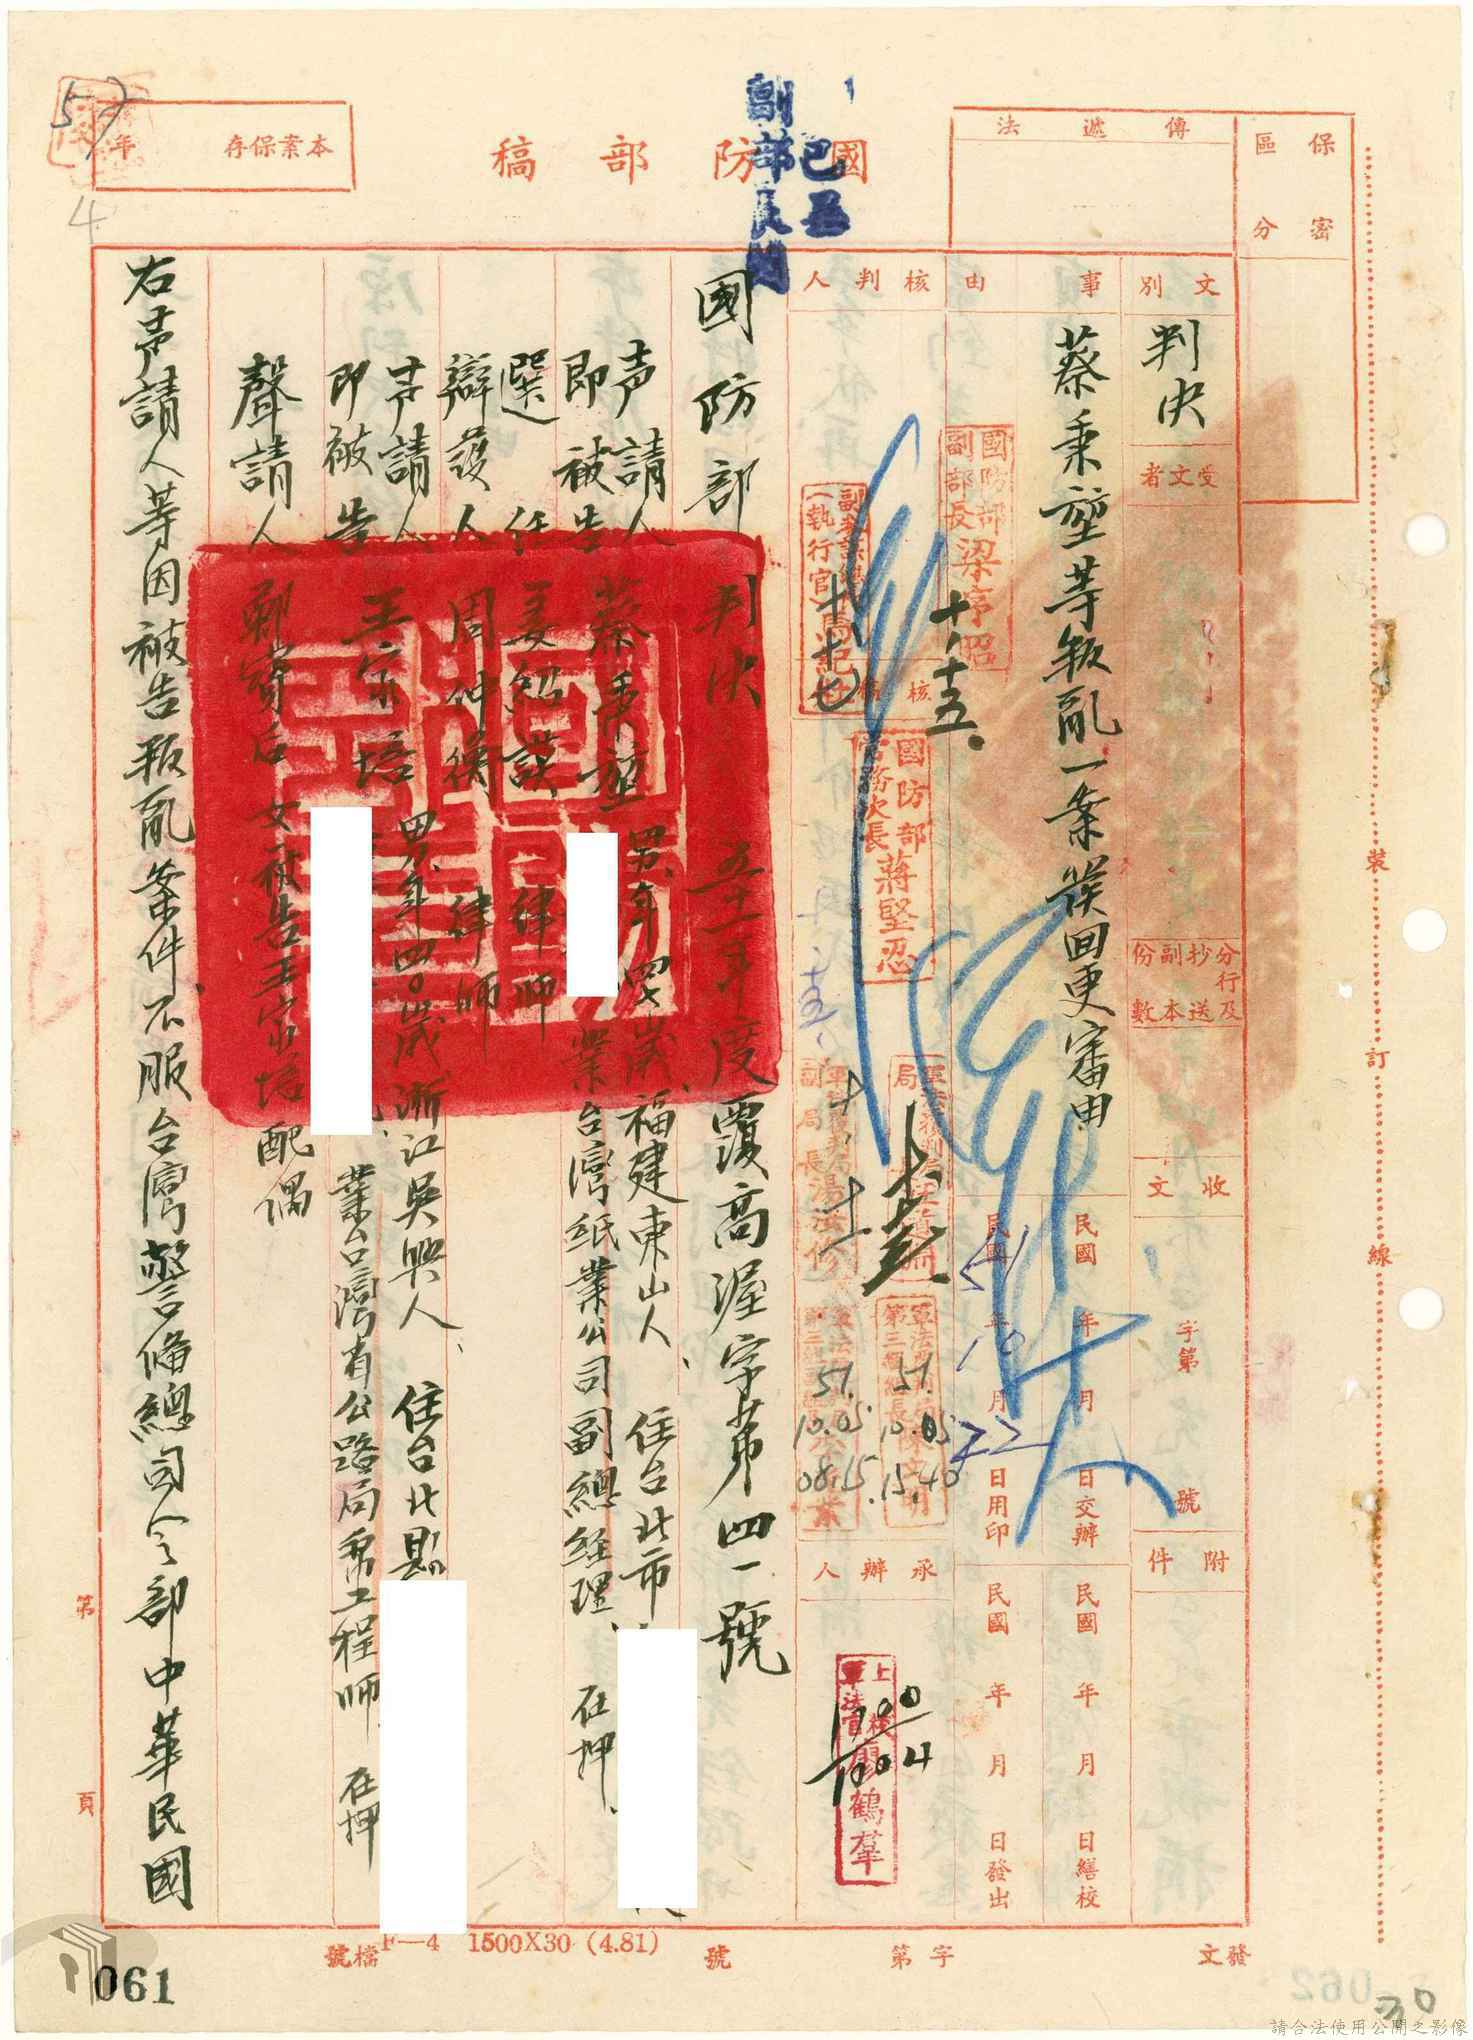 保密
區分
傳遞法
國防部稿
副部長閱
已呈
本案保存 年
57
4
文別
判決
受文者
分行及抄送副本份數
收文
字第 號
附件
事由
蔡秉堃等叛亂一案發回更審由
民國 年 月 日交辦
民國 年 月 日繕校
民國51年10月22日用印
民國 年 月 日發出
核判人
國防部副部長梁序昭
十.十五.
核稿
國防部常務次長蔣堅忍
51.10.05
15.40
51.10.05
08.15
承辦人
上校軍法官廖鶴羣
1700
1004
國防部判決 五十一年度覆高渥字第四一號
声請人即被告 蔡秉堃 男、年四七歲、福建東山人、住台北市
業台灣紙業公司副總經理、在押、
選任辯護人 姜紹謨 律師
周仲衡 律師
声請人即被告 王家培 男、年四〇歲浙江吳興人、住台北縣
業台灣省公路局帮工程師、在押
聲請人 鄭寶后 女、被告王家培配偶
右声請人等因被告叛亂案件、不服台灣警備總司令部中華民國
裝
訂
線
第 頁
檔號
F—4 1500X30 (4.81)
發文 字第 號
061
30
請合法使用公開之影像